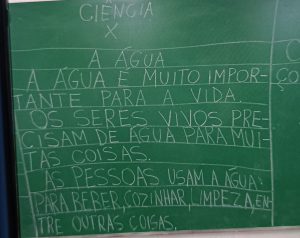 CIÊNCIA
X
A ÁGUA
A ÁGUA É MUITO IMPOR-
TANTE PARA A VIDA.
OS SERES VIVOS PRE-
CISAM DE ÁGUA PARA MUI-
TAS COISAS.
AS PESSOAS USAM A ÁGUA:
PARA BEBER, COZINHAR, LIMPEZA, EN-
TRE OUTRAS COISAS.